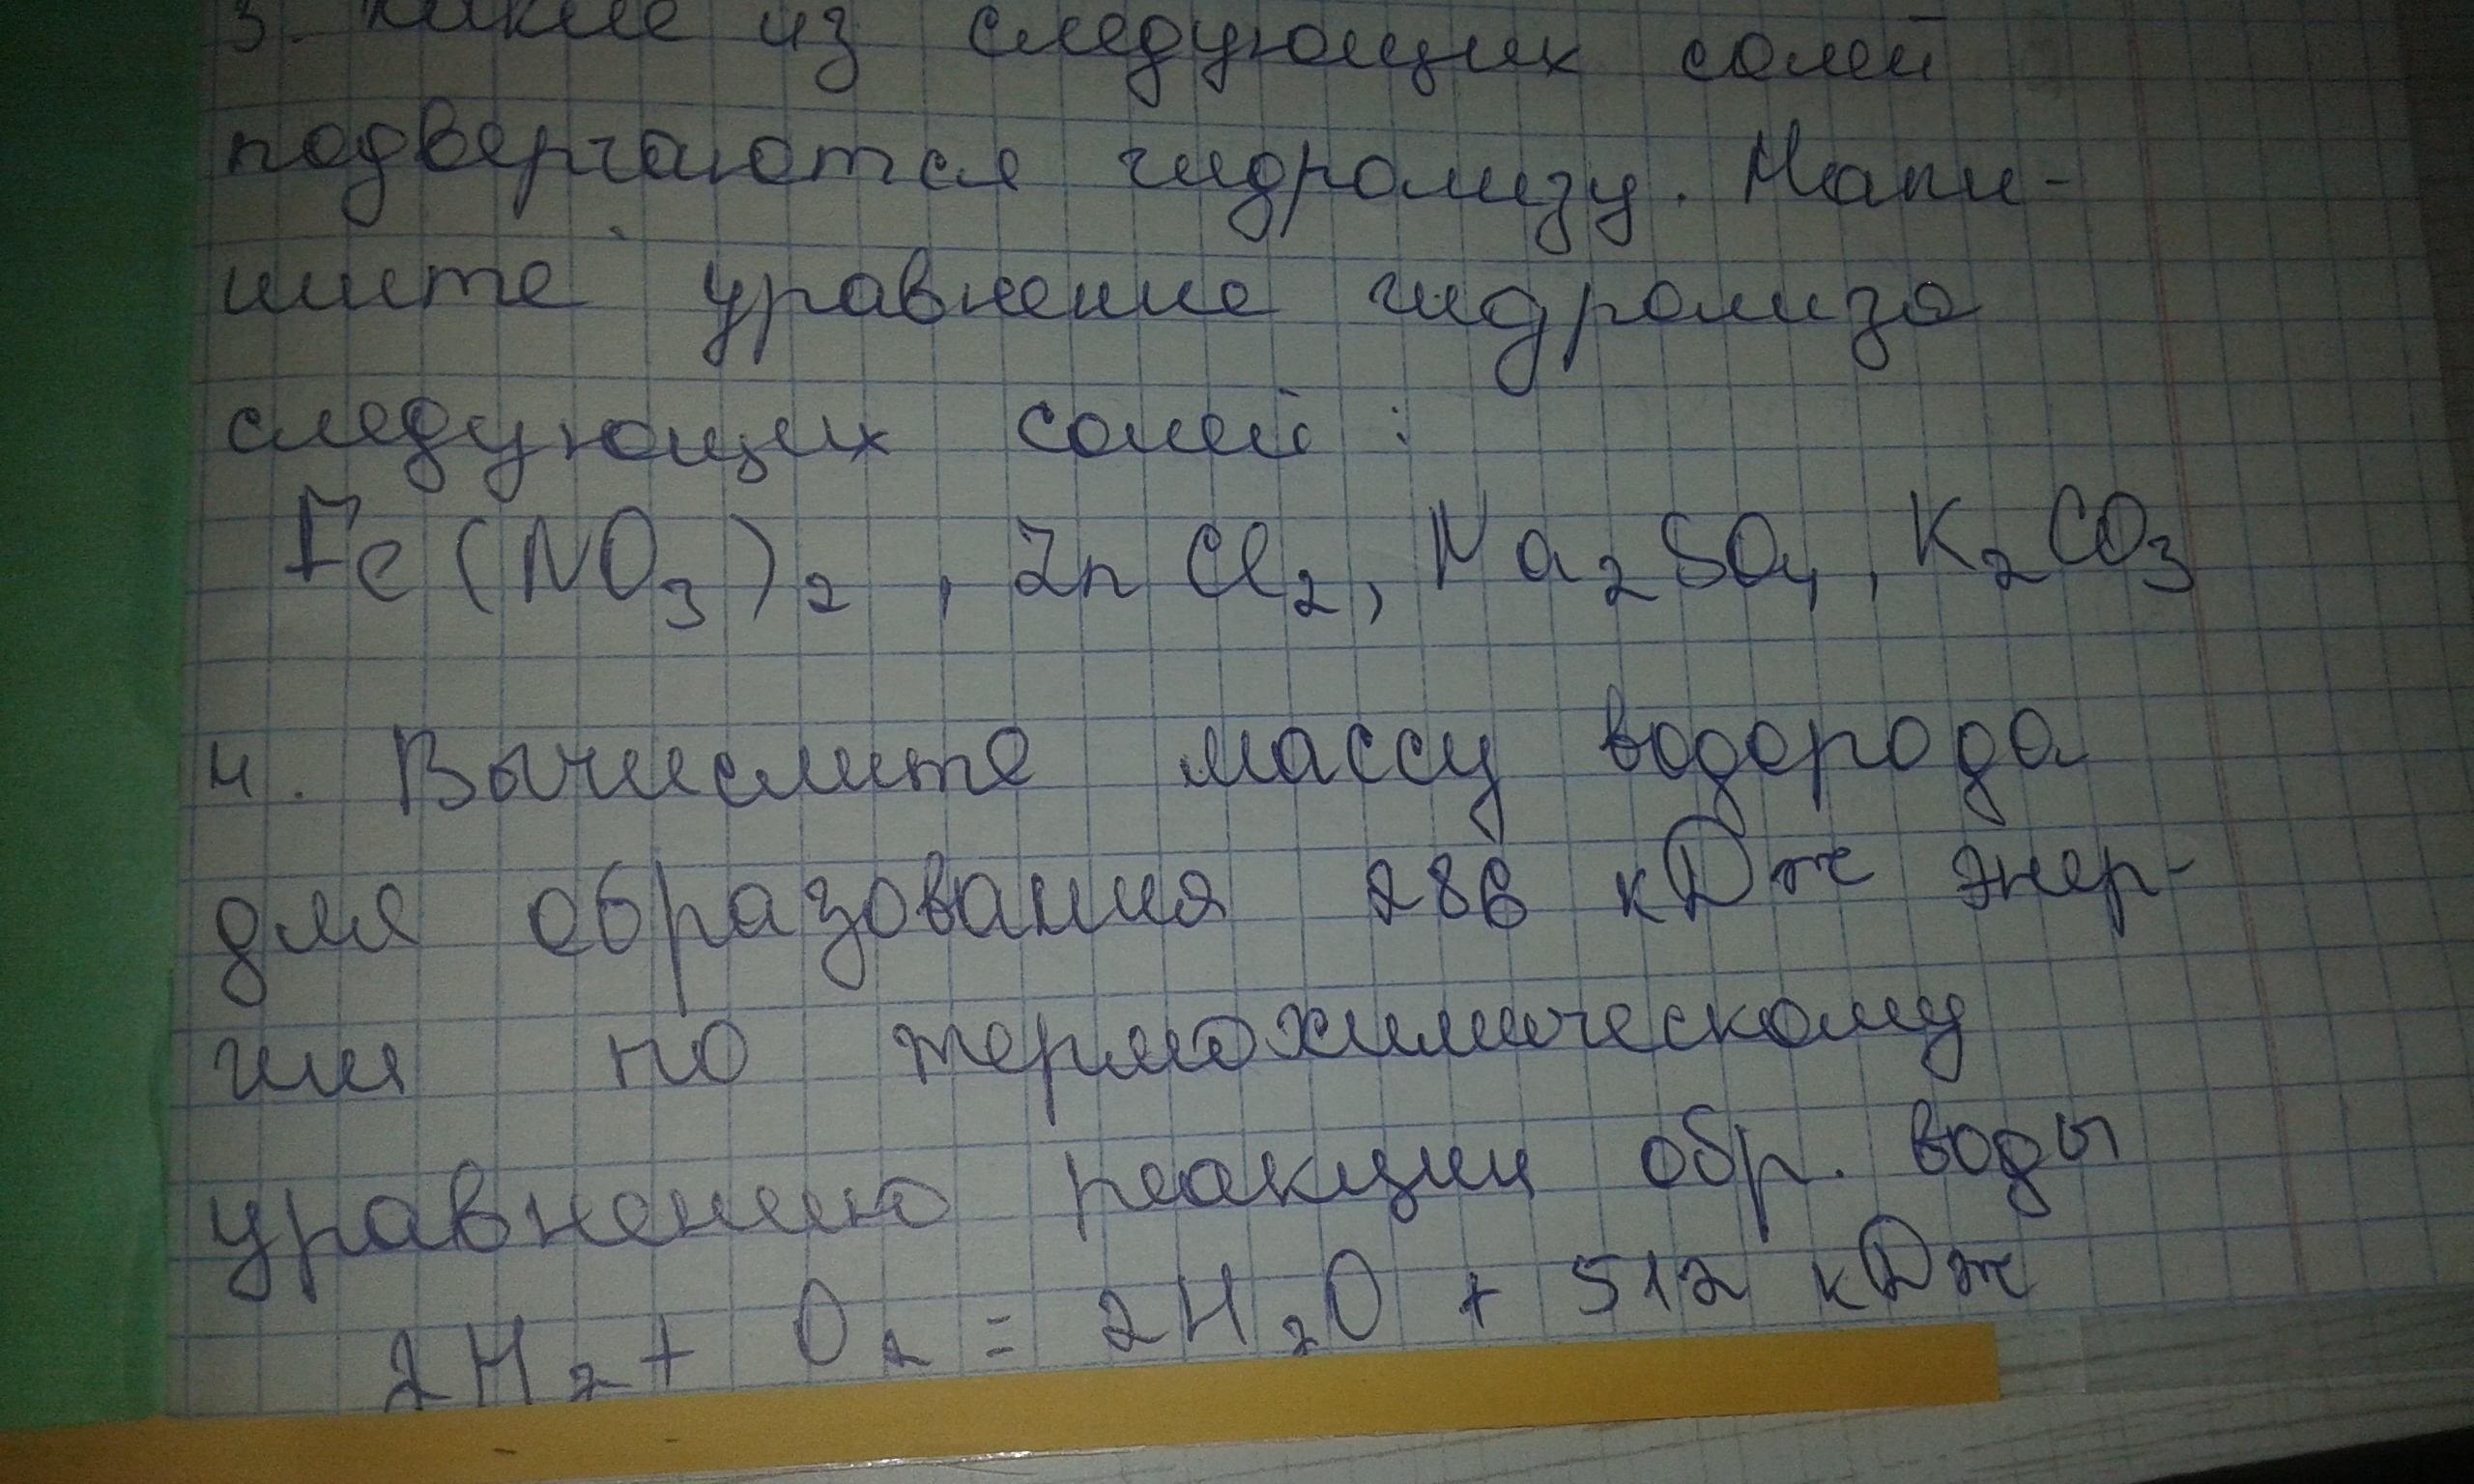 3. Какие из следующих солей
подвергаются гидролизу. Напи-
шите уравнение гидролиза
следующих солей:
Fe(NO₃)₂, ZnCl₂, Na₂SO₄, K₂CO₃
4. Вычислите массу водорода
для образования 286 кДж энер-
гии по термохимическому
уравнению реакции обр. воды
2H₂ + O₂ = 2H₂O + 512 кДж